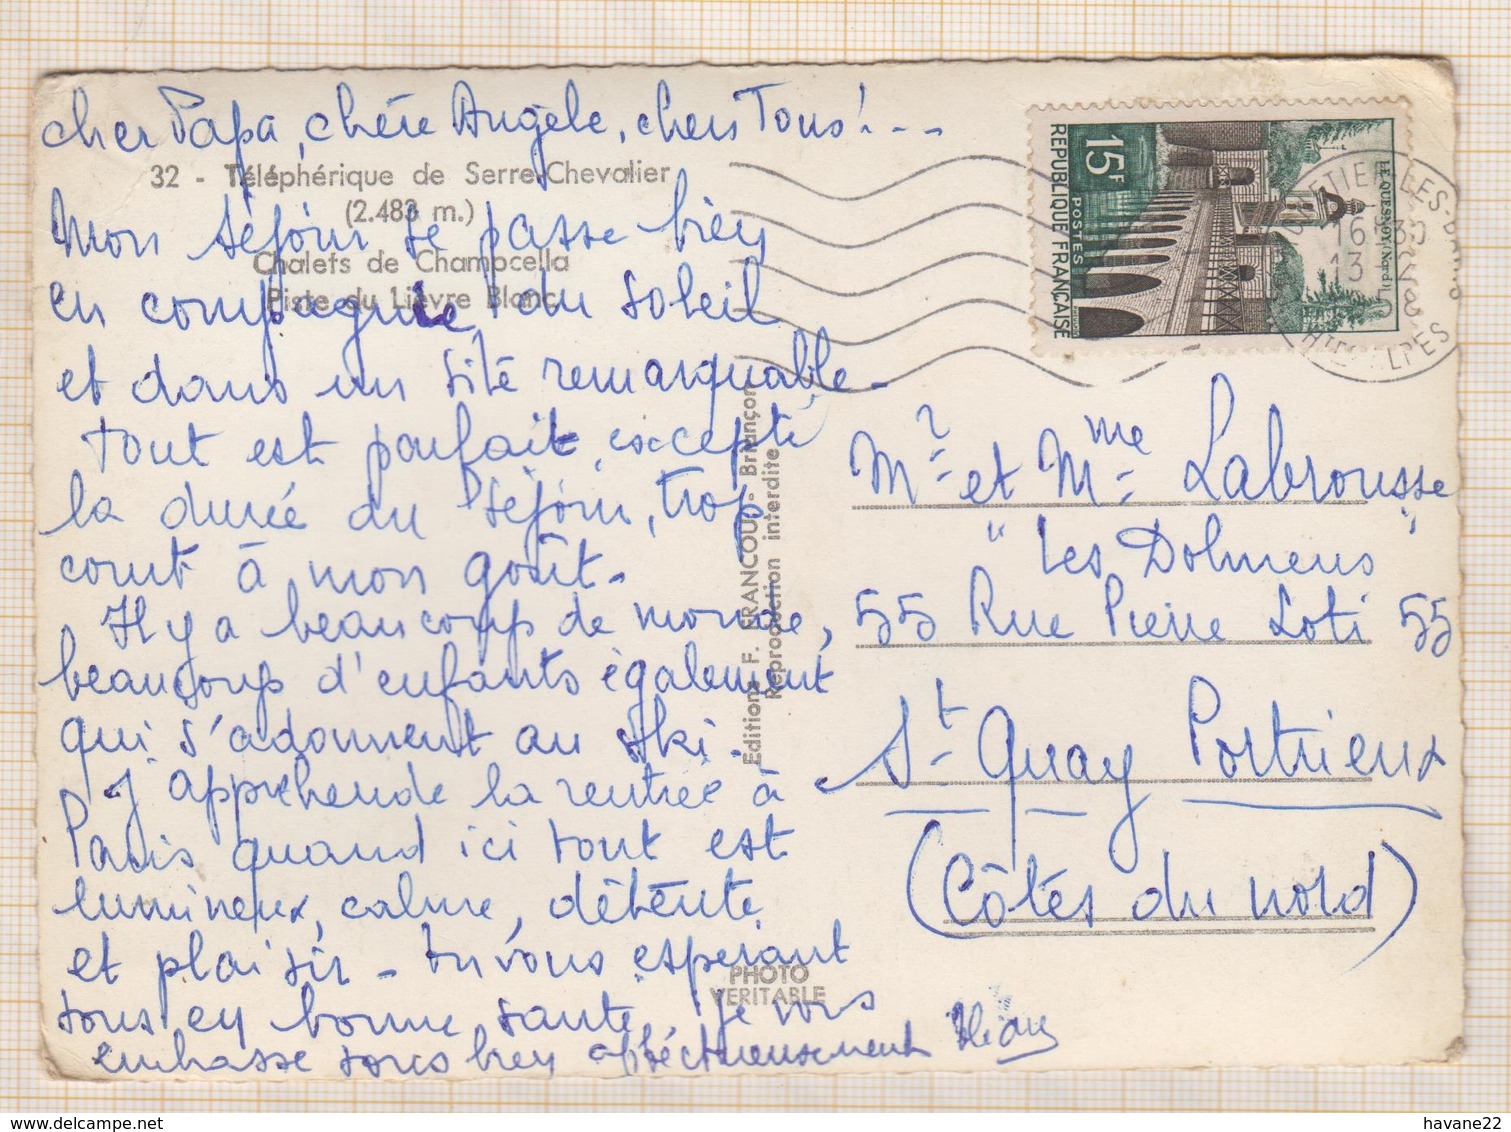 cher Papa, chère Angèle, chers Tous! ...
32 - Téléphérique de Serre-Chevalier
(2.483 m.)
Mon séjour se passe bien
Chalets de Champcella
Piste du Lièvre Blanc
en compagnie du soleil
et dans un site remarquable -
tout est parfait, excepté
la durée du séjour, trop
court à mon goût -
Il y a beaucoup de monde,
beaucoup d'enfants également
qui s'adonnent au ski -
J'appréhende la rentrée à
Paris quand ici tout est
lumineux, calme, détente
et plaisir - En vous espérant
tous en bonne santé je vous
embrasse tous bien affectueusement
Editions F. FRANCOU - Briançon
Reproduction interdite
PHOTO
VERITABLE
15F
POSTES
REPUBLIQUE FRANÇAISE
LE QUESNOY (Nord)
LES-BAINS
16H30
13
HTES ALPES
Mr et Mme Labrousse
"Les Dolmens"
55 Rue Pierre Loti 55
St Quay Portrieux
(Côtes du Nord)
havane22